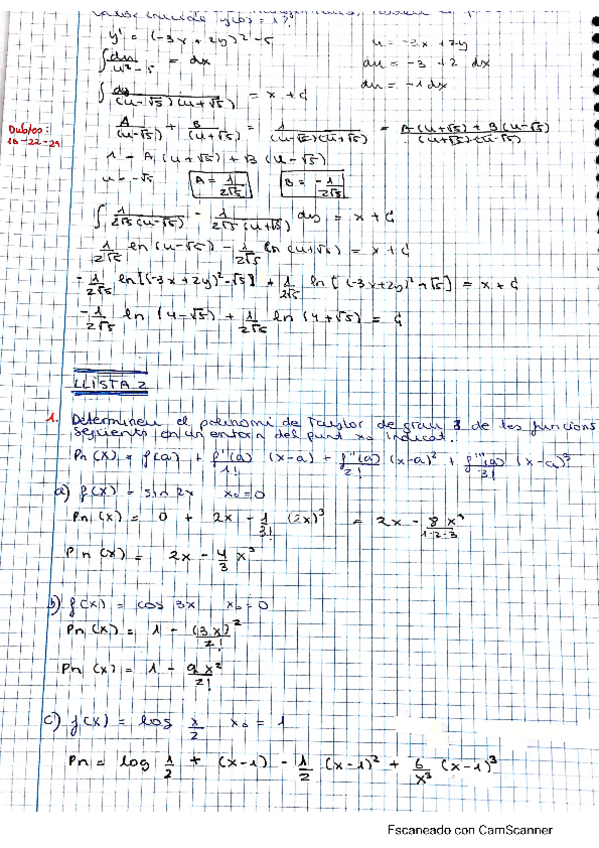 valor inicial y(0) = 1?
y' = (-3x + 2y)² - 5 u = -3x + 2y
∫ du/(u² - 5) = dx du = -3 + 2 dx
du = -1 dx
∫ dy/((u-√5)(u+√5)) = x + C
Dubtes:
18-22-29
A/(u-√5) + B/(u+√5) = 1/((u-√5)(u+√5)) = (A(u+√5) + B(u-√5))/((u+√5)(u-√5))
1 = A(u+√5) + B(u-√5)
u = -√5 A = 1/(2√5) B = -1/(2√5)
∫ 1/(2√5(u-√5)) - 1/(2√5(u+√5)) dy = x + C
1/(2√5) ln(u-√5) - 1/(2√5) ln(u+√5) = x + C
-1/(2√5) ln[(-3x+2y)²-√5] + 1/(2√5) ln[(-3x+2y)²+√5] = x + C
-1/(2√5) ln(4-√5) + 1/(2√5) ln(4+√5) = C
LLISTA 2
1. Determineu el polinomi de Taylor de grau 3 de les funcions
següents en un entorn del punt x₀ indicat.
Pn(x) = f(a) + f'(a)/1! (x-a) + f''(a)/2! (x-a)² + f'''(a)/3! (x-a)³
a) f(x) = sin 2x x₀ = 0
Pn(x) = 0 + 2x - 1/3! (2x)³ = 2x - 8x³/(1·2·3)
Pn(x) = 2x - 4/3 x³
b) f(x) = cos 3x x₀ = 0
Pn(x) = 1 - (3x)²/2!
Pn(x) = 1 - 9x²/2!
c) f(x) = log x/2 x₀ = 1
Pn = log 1/2 + (x-1) - 1/2 (x-1)² + 6/x³ (x-1)³
Escaneado con CamScanner